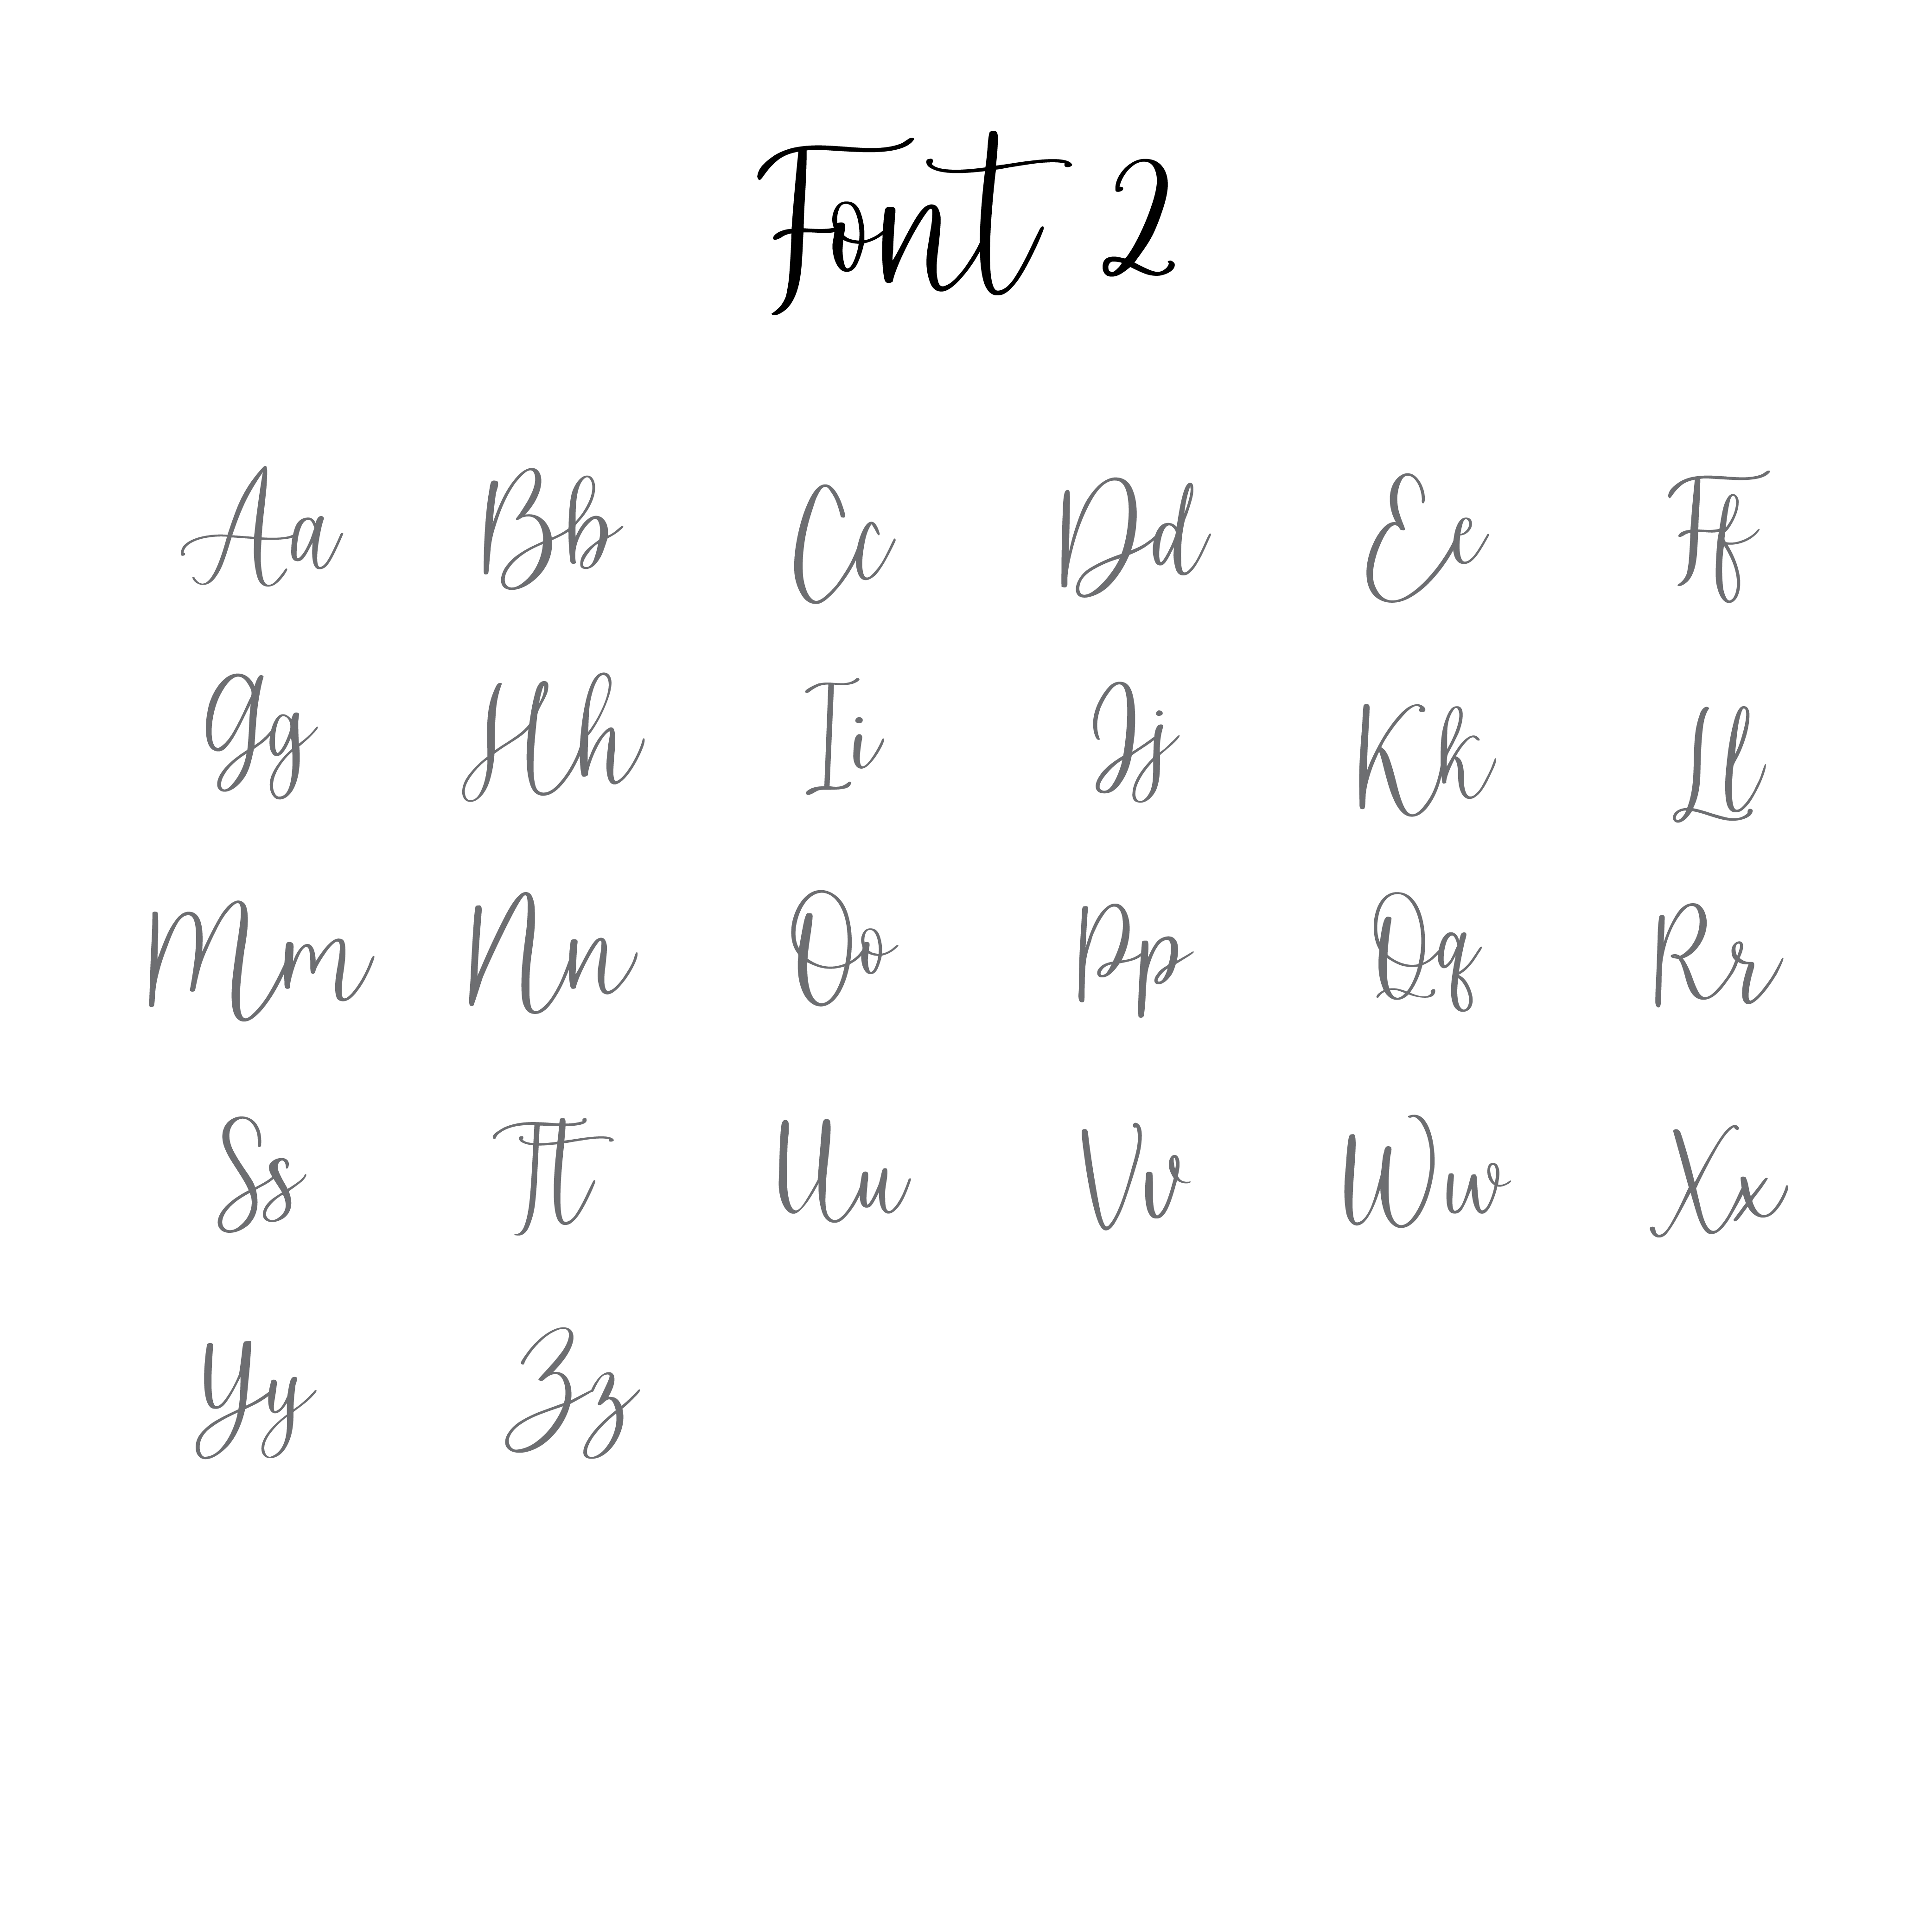 Font 2
Aa Bb Cc Dd Ee Ff
Gg Hh Ii Jj Kk Ll
Mm Nn Oo Pp Qq Rr
Ss Tt Uu Vv Ww Xx
Yy Zz